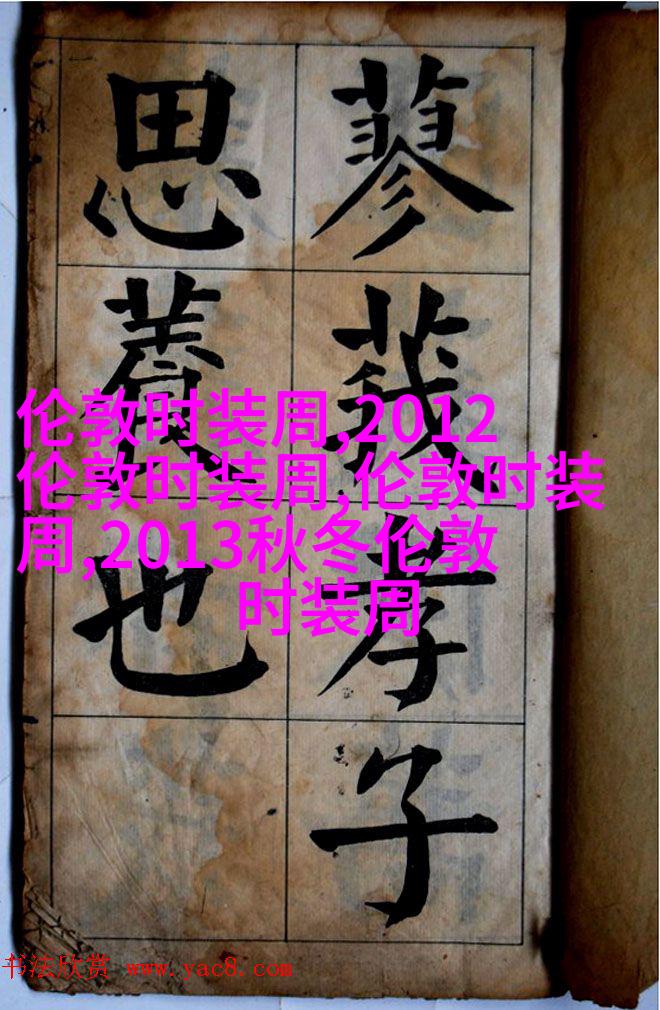 蓼莪孝子
思養也
伦敦时装周,2012
伦敦时装周,伦敦时装
周,2013秋冬伦敦
时装周
书法欣赏 www.yac8.com